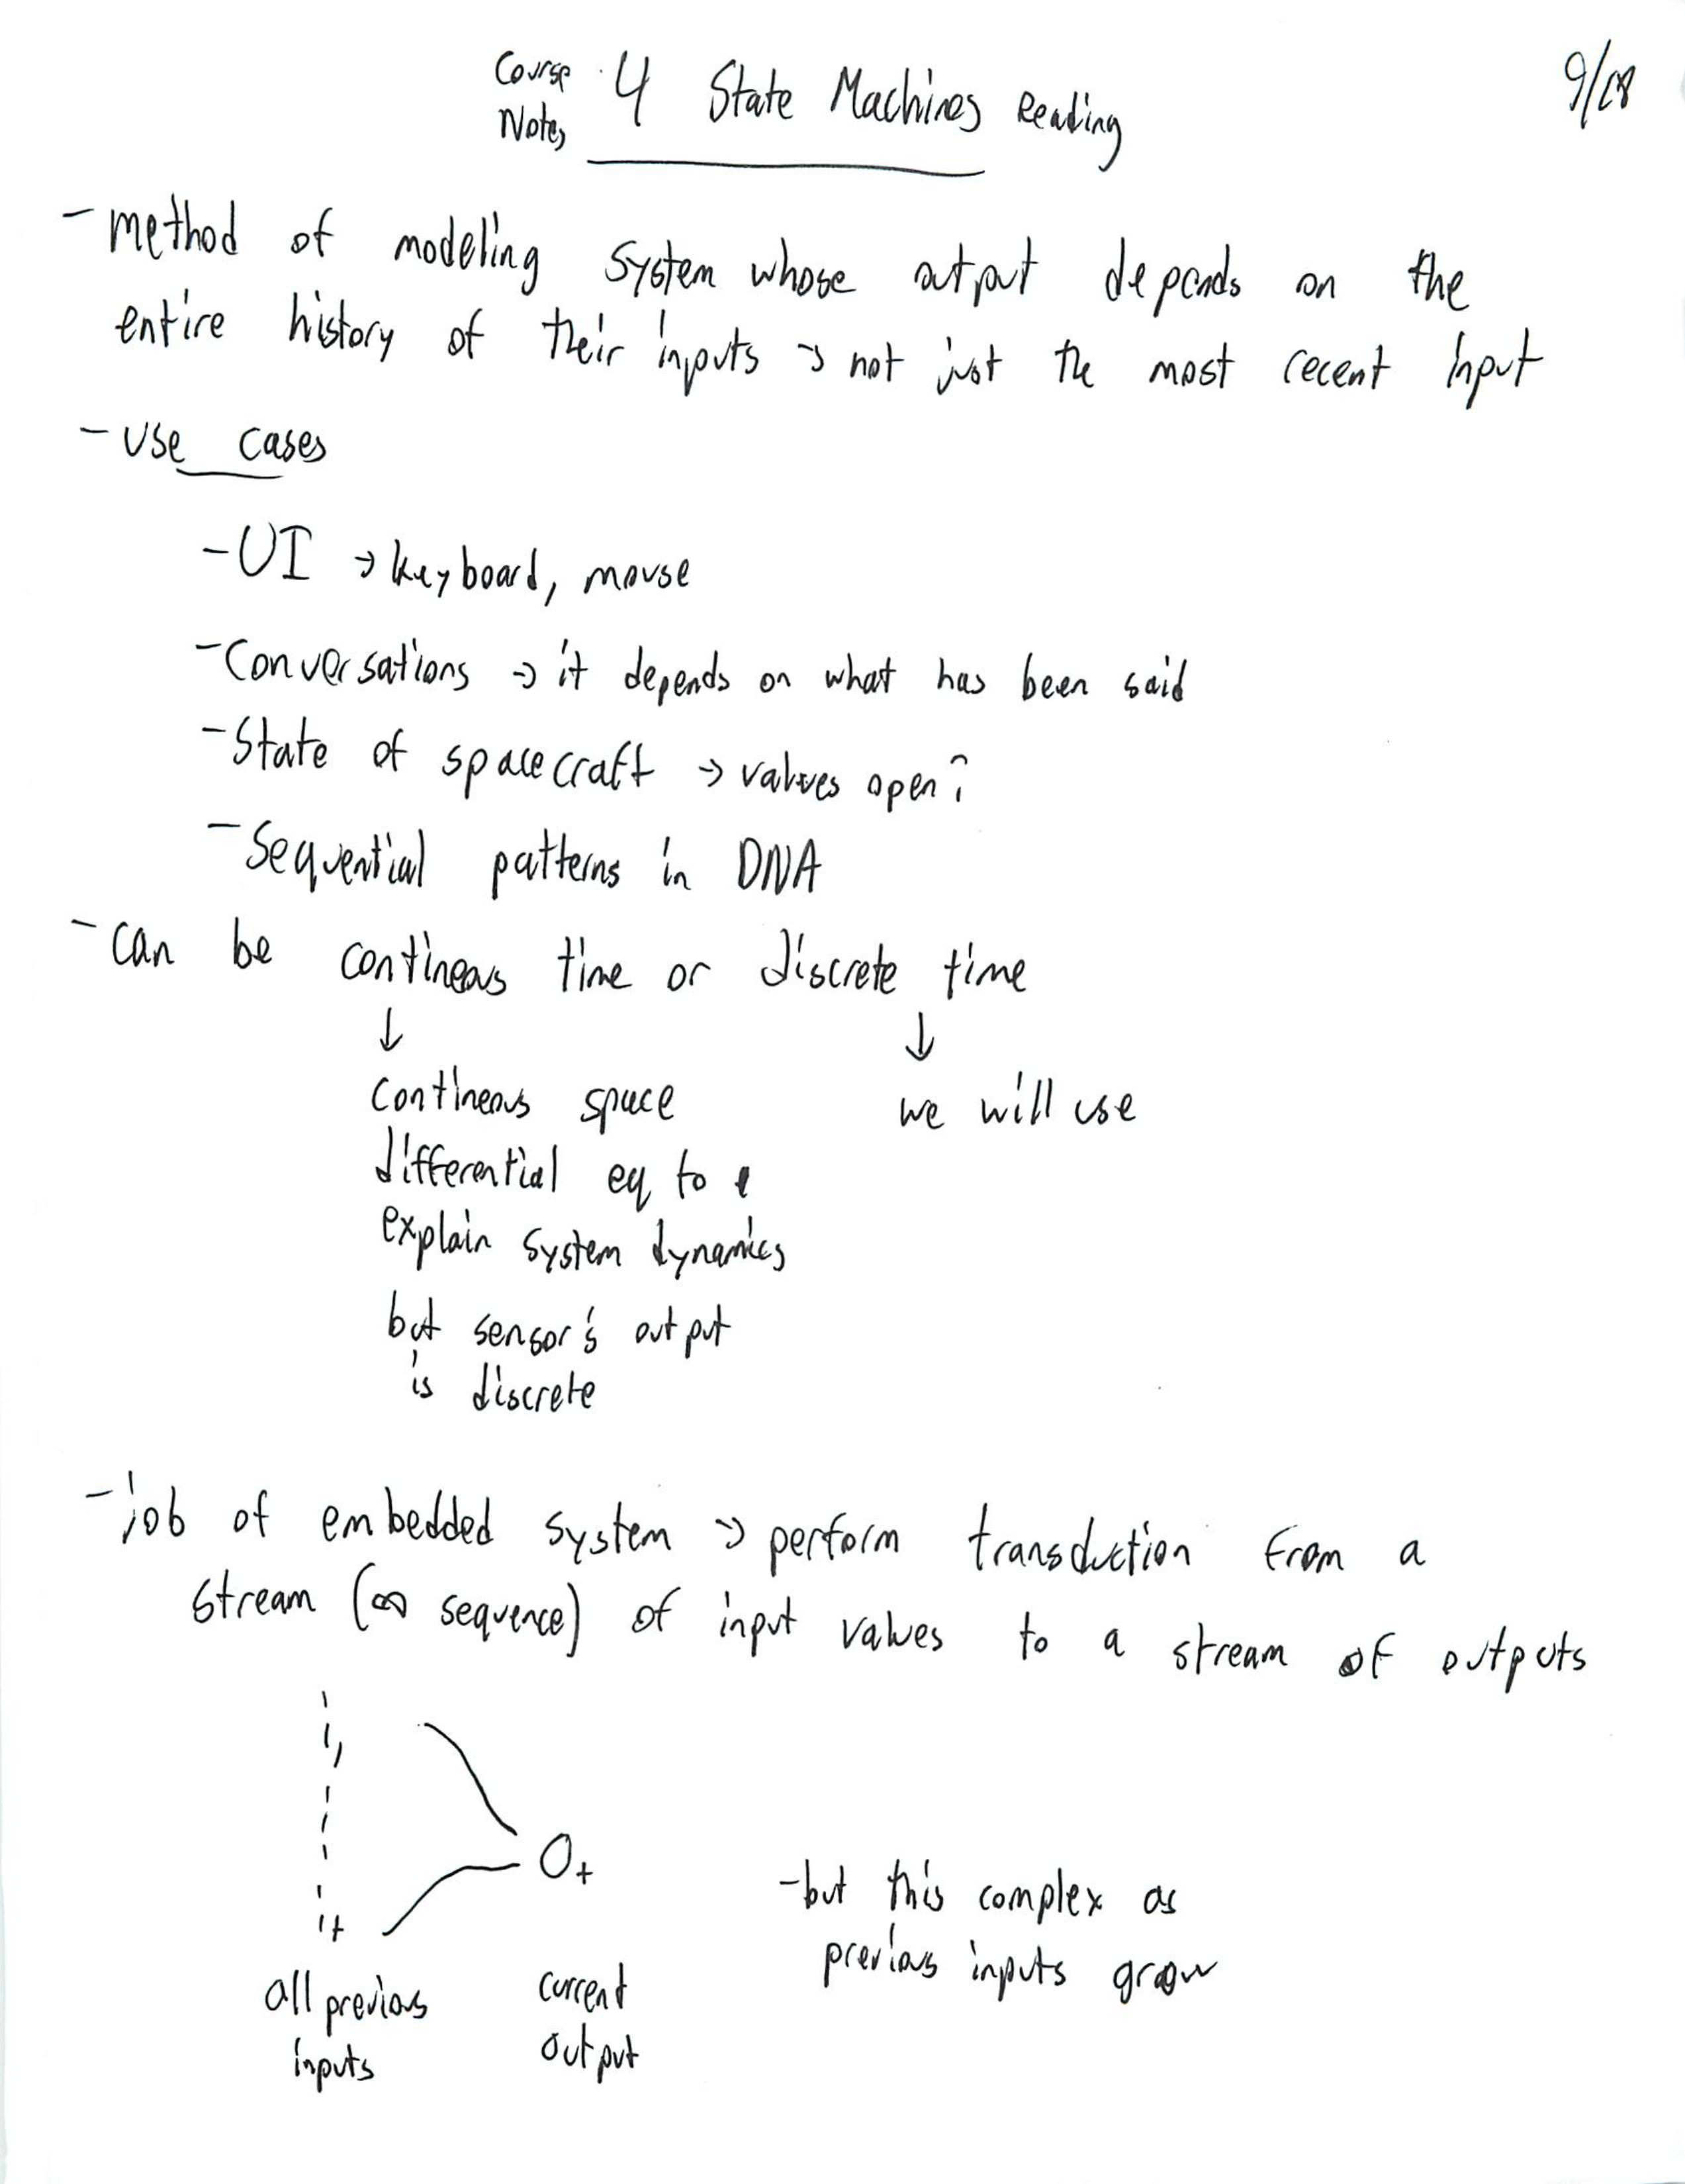 Course Notes 4 State Machines Reading
9/28
- method of modeling system whose output depends on the
entire history of their inputs → not just the most recent input
- use cases
- UI → keyboard, mouse
- Conversations → it depends on what has been said
- State of spacecraft → valves open?
- Sequential patterns in DNA
- can be contineous time or discrete time
↓ ↓
contineous space
we will use
differential eq to
explain system dynamics
but sensor's output
is discrete
- job of embedded system → perform transduction from a
stream (∞ sequence) of input values to a stream of outputs
i,
it
Ot
all previous
inputs
current
output
- but this complex as
previous inputs grow